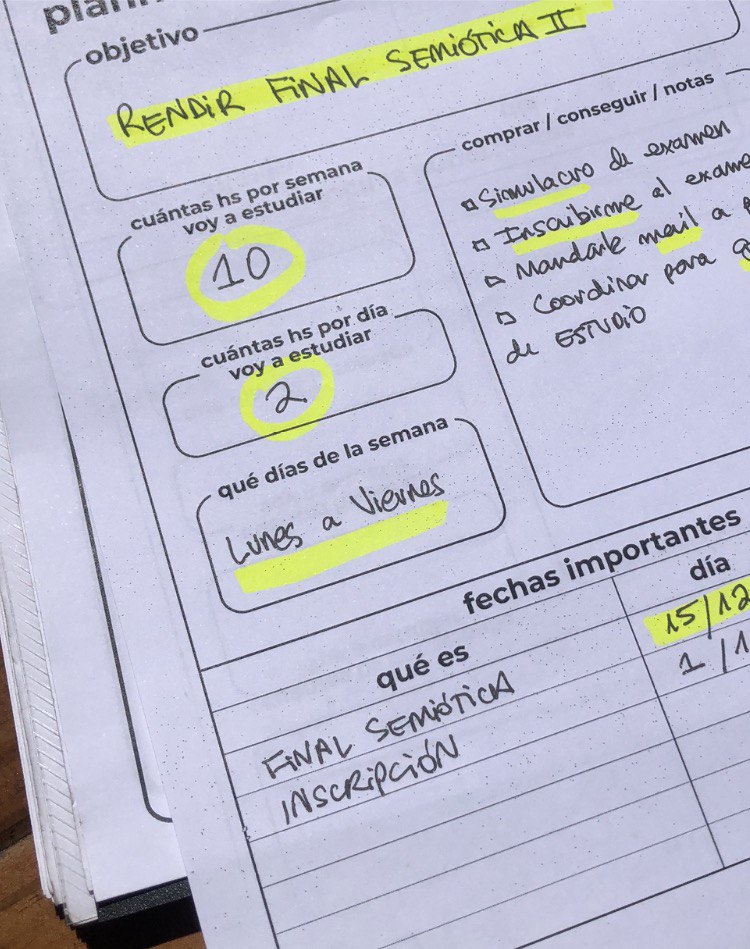 objetivo
RENDIR FINAL SEMIÓTICA II
cuántas hs por semana
voy a estudiar
10
cuántas hs por día
voy a estudiar
2
qué días de la semana
Lunes a Viernes
comprar / conseguir / notas
Simulacro de examen
Inscribirme al
Mandarle mail a
Coordinar para
de ESTUDIO
fechas importantes
qué es
día
FINAL SEMIÓTICA
15/12
INSCRIPCIÓN